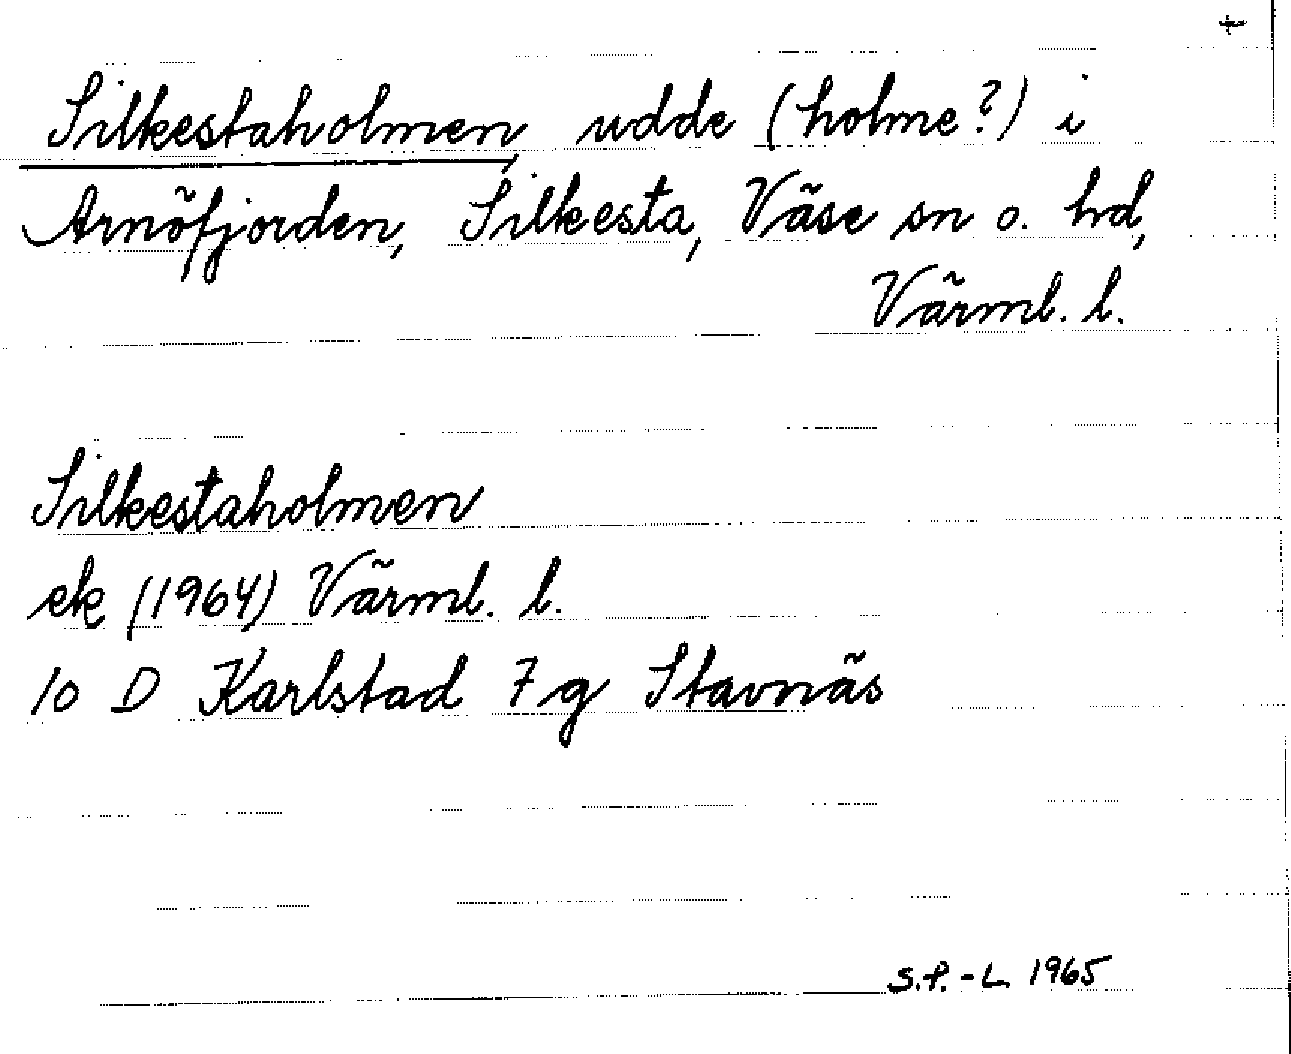 +
Silkestaholmen, udde (holme?) i
Arnöfjorden, Silkesta, Väse sn o. hd,
Värml. l.
Silkestaholmen
ek (1964) Värml. l.
10 D Karlstad 7 g Stavnäs
S.P.-L 1965